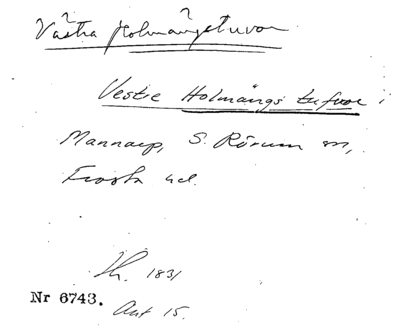 Västra Holmängstuvor
Vestre Holmängs tufvor i
Mannarp, S. Rörum sn,
Frosta hd.
1831
Nr 6743. Akt 15.